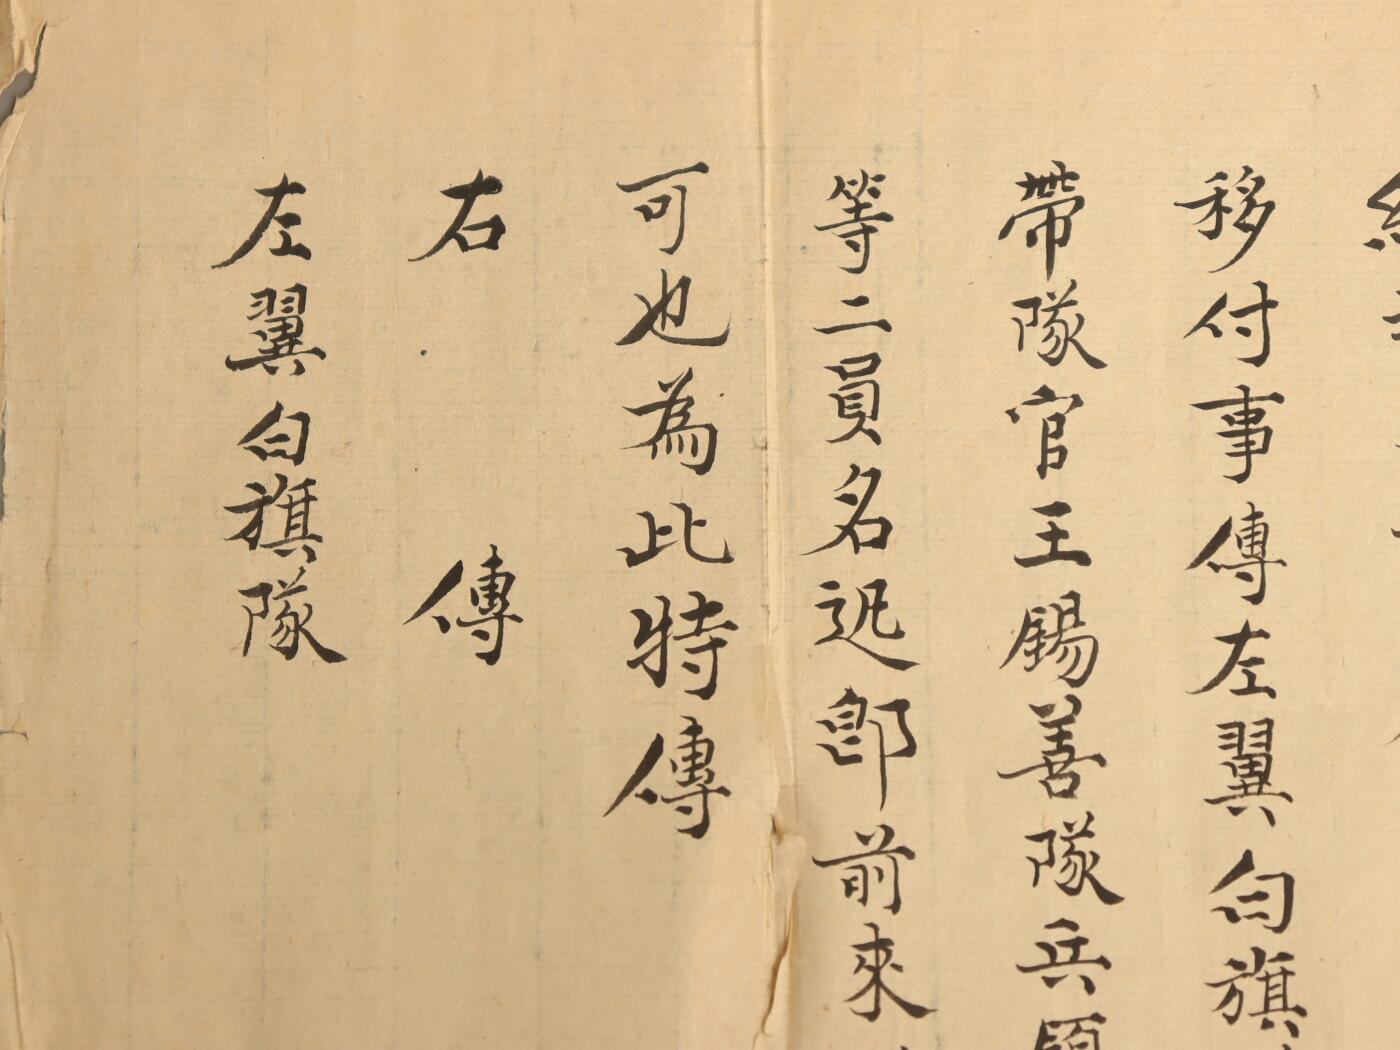 移付事傳左翼白旗
帶隊官王錫善隊兵
等二員名迅即前來
可也為此特傳
右傳
左翼白旗隊